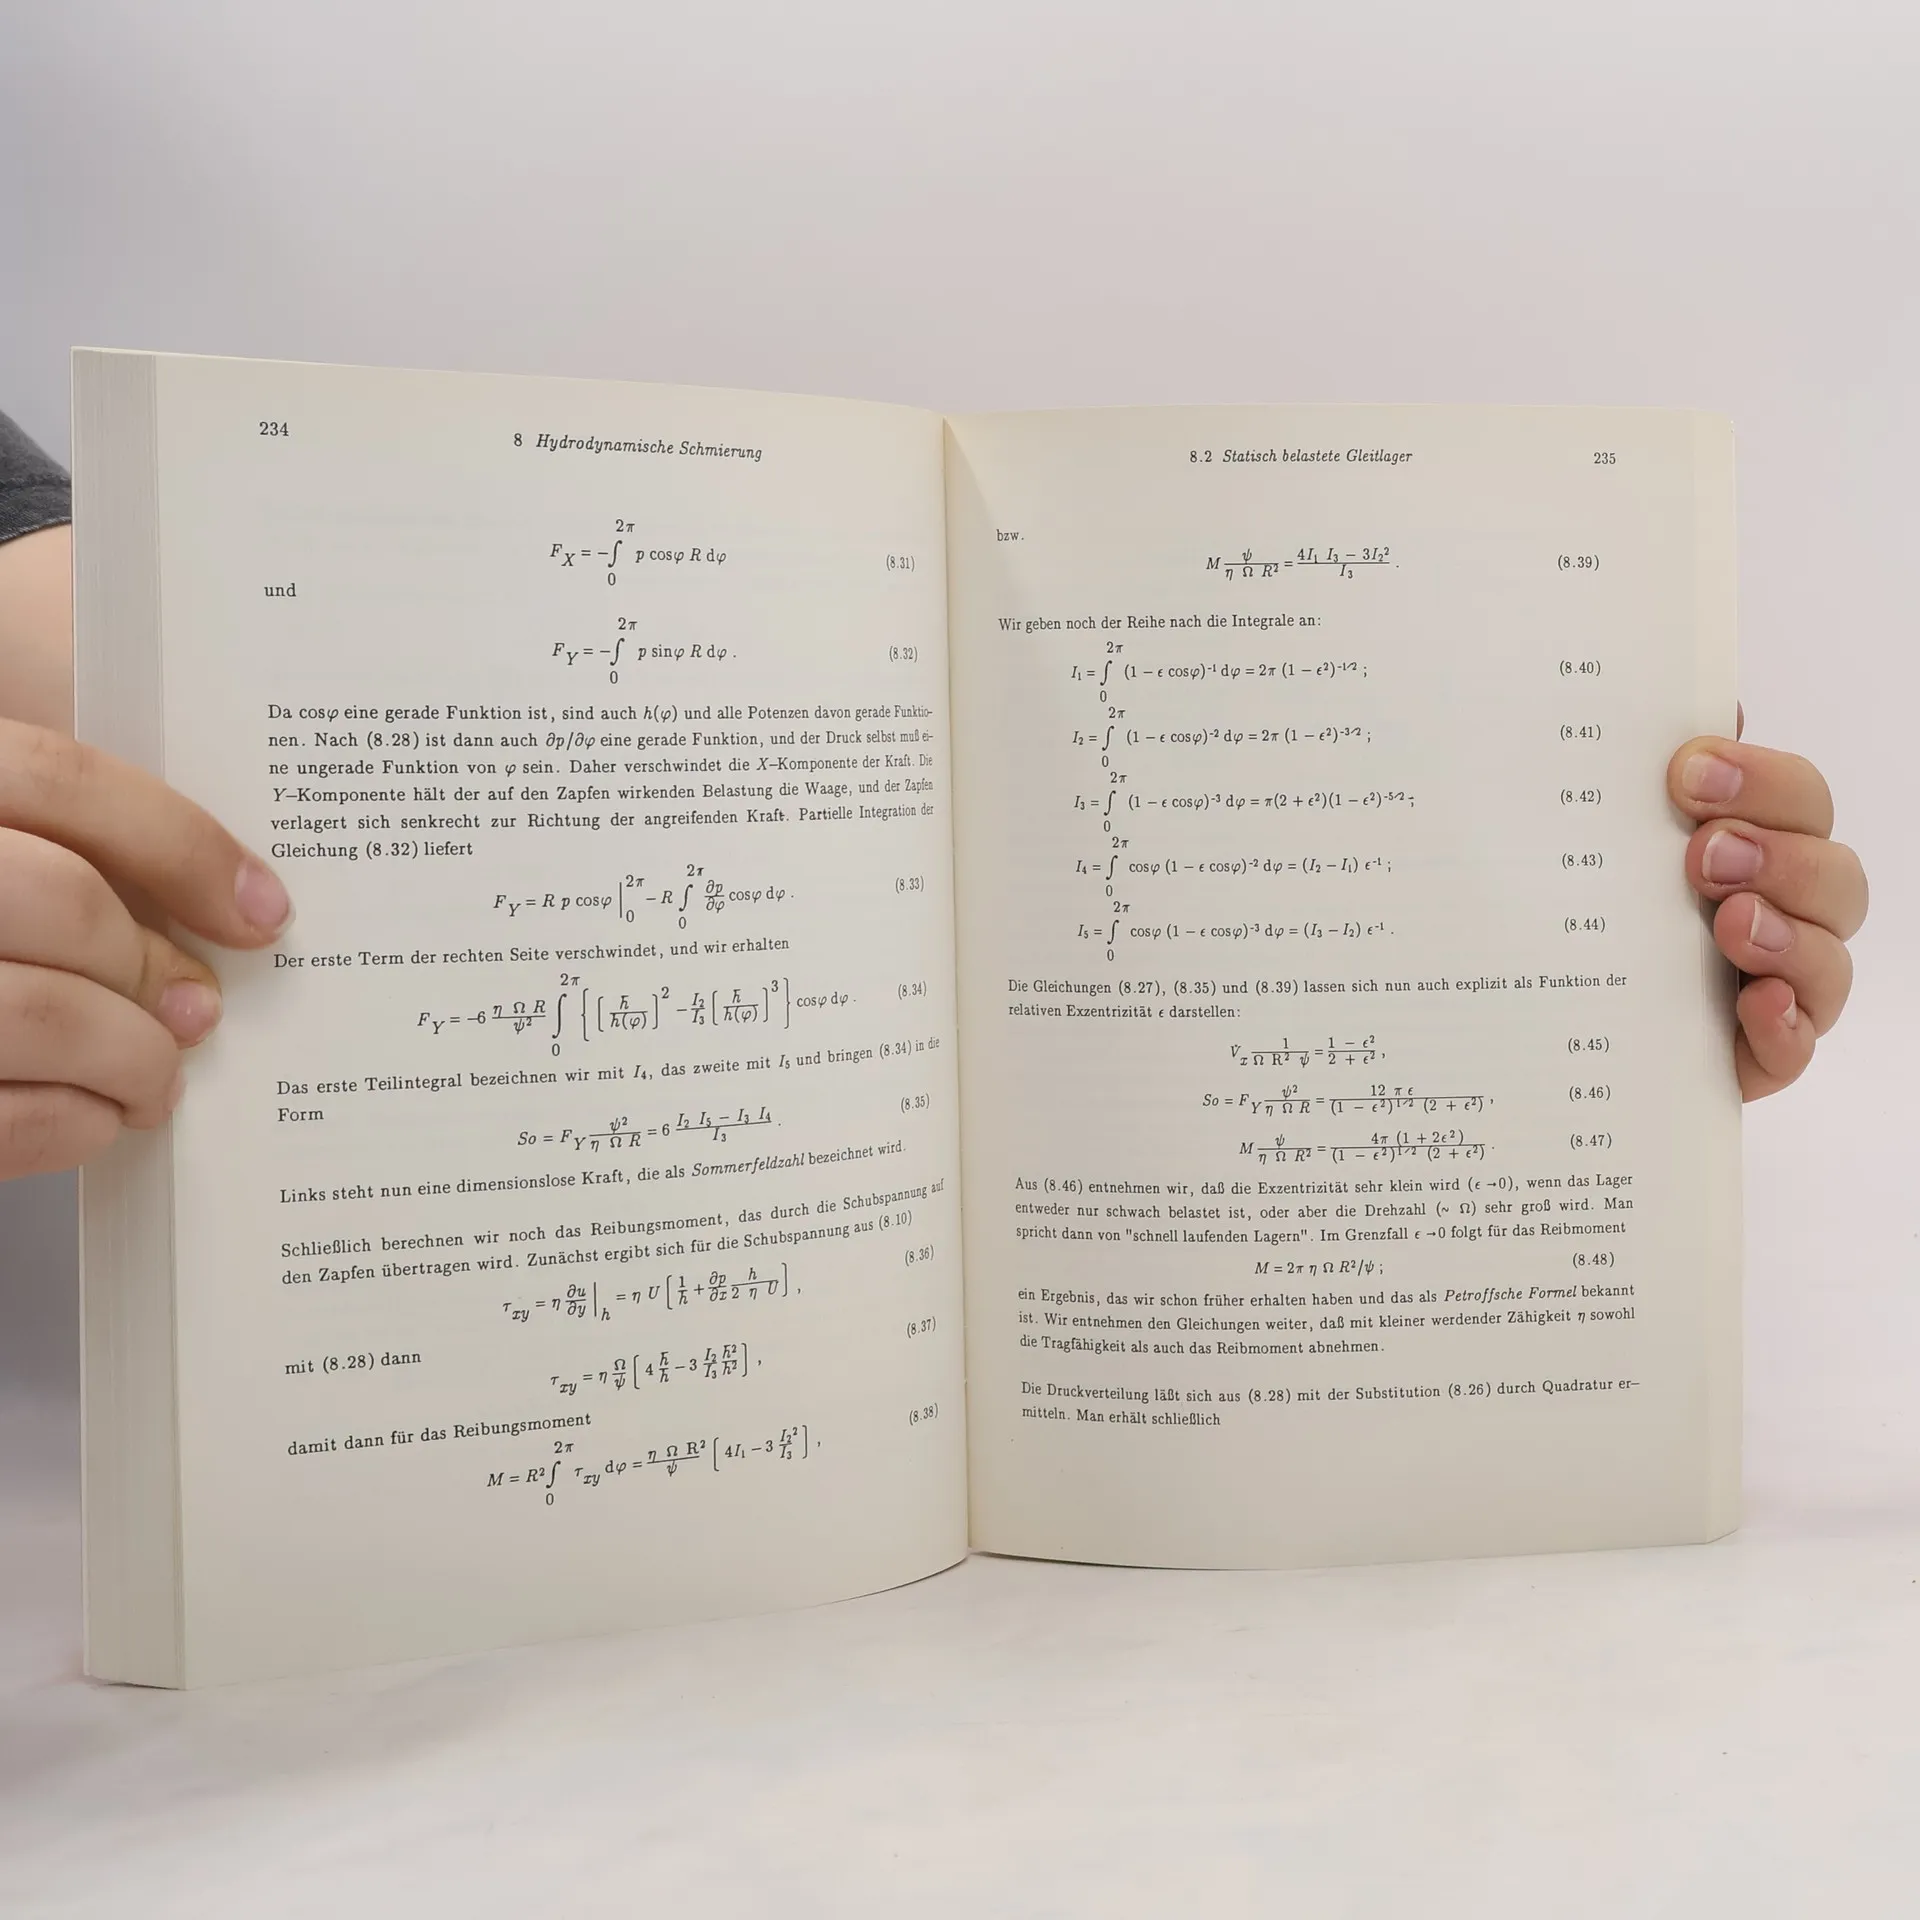 234
8 Hydrodynamische Schmierung
2π
F_X = −∫ p cosφ R dφ (8.31)
0
und
2π
F_Y = −∫ p sinφ R dφ . (8.32)
0
Da cosφ eine gerade Funktion ist, sind auch h(φ) und alle Potenzen davon gerade Funktio–
nen. Nach (8.28) ist dann auch ∂p/∂φ eine gerade Funktion, und der Druck selbst muß ei–
ne ungerade Funktion von φ sein. Daher verschwindet die X–Komponente der Kraft. Die
Y–Komponente hält der auf den Zapfen wirkenden Belastung die Waage, und der Zapfen
verlagert sich senkrecht zur Richtung der angreifenden Kraft. Partielle Integration der
Gleichung (8.32) liefert
F_Y = R p cosφ |₀^2π − R ∫₀^2π ∂p/∂φ cosφ dφ . (8.33)
Der erste Term der rechten Seite verschwindet, und wir erhalten
F_Y = −6 η Ω R/ψ² ∫₀^2π { [h̄/h(φ)]² − I₂/I₃ [h̄/h(φ)]³ } cosφ dφ . (8.34)
Das erste Teilintegral bezeichnen wir mit I₄, das zweite mit I₅ und bringen (8.34) in die
Form
So = F_Y ψ²/(η Ω R) = 6 (I₂ I₅ − I₃ I₄)/I₃ . (8.35)
Links steht nun eine dimensionslose Kraft, die als Sommerfeldzahl bezeichnet wird.
Schließlich berechnen wir noch das Reibungsmoment, das durch die Schubspannung auf
den Zapfen übertragen wird. Zunächst ergibt sich für die Schubspannung aus (8.10)
τ_xy = η ∂u/∂y |_h = η U [ 1/h + ∂p/∂x h/(2 η U) ] , (8.36)
mit (8.28) dann
τ_xy = η Ω/ψ [ 4 h̄/h − 3 I₂/I₃ h̄²/h² ] , (8.37)
damit dann für das Reibungsmoment
M = R² ∫₀^2π τ_xy dφ = η Ω R²/ψ [ 4I₁ − 3 I₂²/I₃ ] , (8.38)
8.2 Statisch belastete Gleitlager
235
bzw.
M ψ/(η Ω R²) = (4I₁ I₃ − 3I₂²)/I₃ . (8.39)
Wir geben noch der Reihe nach die Integrale an:
I₁ = ∫₀^2π (1 − ε cosφ)⁻¹ dφ = 2π (1 − ε²)^-1/2 ; (8.40)
I₂ = ∫₀^2π (1 − ε cosφ)⁻² dφ = 2π (1 − ε²)^-3/2 ; (8.41)
I₃ = ∫₀^2π (1 − ε cosφ)⁻³ dφ = π(2 + ε²)(1 − ε²)^-5/2 ; (8.42)
I₄ = ∫₀^2π cosφ (1 − ε cosφ)⁻² dφ = (I₂ − I₁) ε⁻¹ ; (8.43)
I₅ = ∫₀^2π cosφ (1 − ε cosφ)⁻³ dφ = (I₃ − I₂) ε⁻¹ . (8.44)
Die Gleichungen (8.27), (8.35) und (8.39) lassen sich nun auch explizit als Funktion der
relativen Exzentrizität ε darstellen:
V̇_x 1/(Ω R² ψ) = (1 − ε²)/(2 + ε²) , (8.45)
So = F_Y ψ²/(η Ω R) = 12 π ε/((1 − ε²)^1/2 (2 + ε²)) , (8.46)
M ψ/(η Ω R²) = 4π (1 + 2ε²)/((1 − ε²)^1/2 (2 + ε²)) . (8.47)
Aus (8.46) entnehmen wir, daß die Exzentrizität sehr klein wird (ε →0), wenn das Lager
entweder nur schwach belastet ist, oder aber die Drehzahl (~ Ω) sehr groß wird. Man
spricht dann von "schnell laufenden Lagern". Im Grenzfall ε →0 folgt für das Reibmoment
M = 2π η Ω R²/ψ ; (8.48)
ein Ergebnis, das wir schon früher erhalten haben und das als Petroffsche Formel bekannt
ist. Wir entnehmen den Gleichungen weiter, daß mit kleiner werdender Zähigkeit η sowohl
die Tragfähigkeit als auch das Reibmoment abnehmen.
Die Druckverteilung läßt sich aus (8.28) mit der Substitution (8.26) durch Quadratur er–
mitteln. Man erhält schließlich